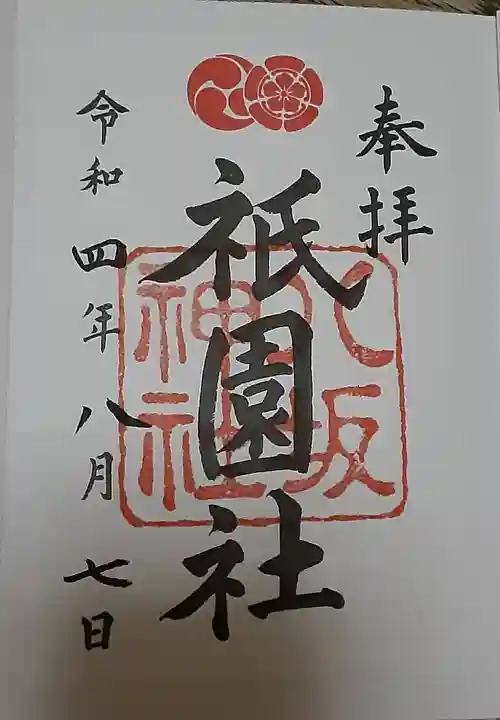 奉拝
八坂
神社
祇園社
令和四年八月七日